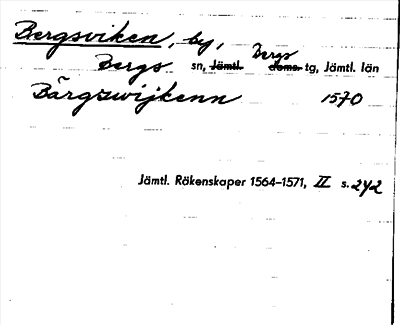 Bergsviken, by,
Bergs sn, Jämtl. Bergs doms. tg, Jämtl. län
Bärgzwijkenn 1570
Jämtl. Räkenskaper 1564–1571, II s. 242